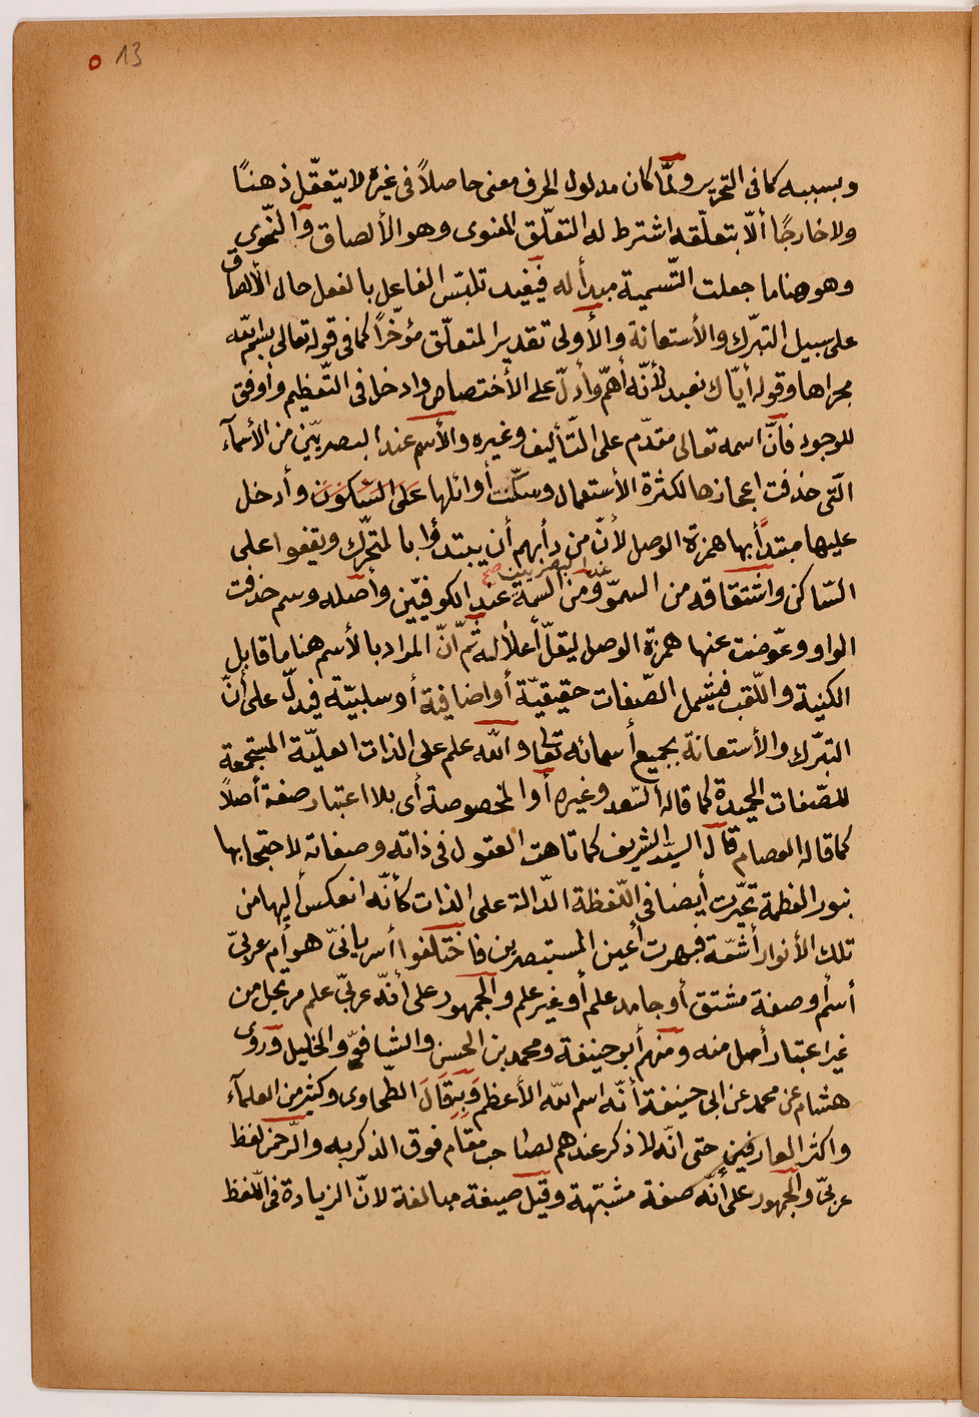 ٥ 13
وبسببه كما فى التحرير ولمّا كان مدلول الحرف معنى حاصلاً فى غيره لا يتعقّل ذهنًا
ولا خارجًا ألّا بتعلّقه اشترط له التعلّق المعنوى وهو الألصاق والنّحوى
وهو هنا ما جعلت التّسمية مبدأ له فيفيد تلبّس الفاعل بالفعل حال الألصاق
على سبيل التبرّك والأستعانة والأولى تقدير المتعلّق مؤخّراً كما فى قوله تعالى بسم اللّه
مجراها وقوله أيّاك نعبد لأنّه أهمّ وأدلّ على الأختصاص وادخل فى التّعظيم وأوفق
للوجود فأنّ اسمه تعالى متدّم على التّأليف وغيره والأسم عند البصريّين من الأسمآء
الّتى حذفت اعجازها لكثرة الأستعمال وسكّنت أوائلها عَلَى السّكونِ وأدخل
عليها مبتدأ بها همزة الوصل لأنّ من دأبهم أن يبتدؤا بالمتحرّك ويقفوا على
السّاكن واشتقاقه من السموّ عند البصريين صح ومن السّمة عند الكوفيّين وأصله وسم حذفت
الواو وعوّضت عنها همزة الوصل ليقلّ أعلاله ثمّ أنّ المراد بالأسم هنا ما قابل
الكنية واللّقب فيشمل الصّفات حقيقيّة أو اضافية أو سلبيّة فيدلّ على أنّ
التبرّك والأستعانة بجميع أسمائه تعالى واللّه علم على الذات العليّة المستجمعة
للصّفات الحميدة كما قاله السّعد وغيره أو المخصوصة أى بلا اعتبار صفة أصلاً
كما قاله العصام قال السيّد الشريف كما تاهت العقول فى ذاته وصفاته لاحتجابها
بنور العظمة تحيّرت أيضا فى اللّفظة الدّالة على الذات كأنّه انعكس أليها من
تلك الأنوار أشعّة فبهرت أعين المستبصرين فاختلفوا أسريانىّ هو أم عربىّ
أسم أو صفة مشتق أو جامد علم أو غير علم والجمهور على أنّه عربىّ علم مرتجل من
غير اعتبار أصل منه ومنهم أبو حنيفة ومحمد بن الحسن والشافعىّ والخليل وروى
هشام عن محمد عن ابى حنيفة أنّه اسم اللّه الأعظم وَبِهِ قَالَ الطّحاوى وكثير من العلمآء
واكثر العارفين حتى انّه لا ذكر عندهم لصاحب مقام فوق الذكر به والرّحمن لفظ
عربىّ والجمهور على أنّه صفة مشبّهة وقيل صيغة مبالغة لانّ الزيادة فى اللّفظ